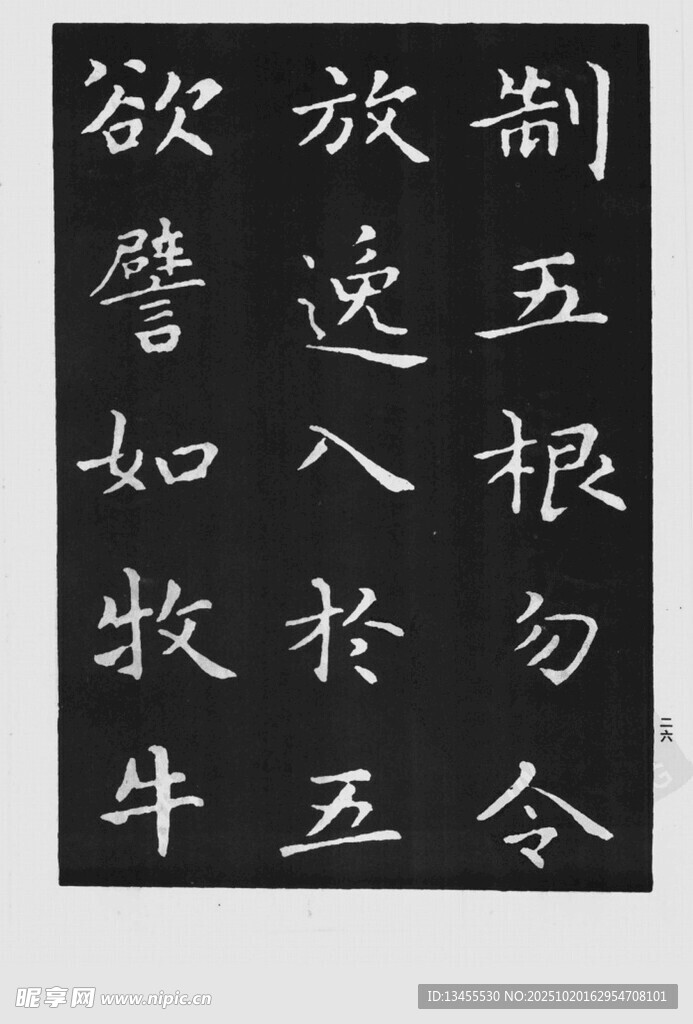 制五根勿令
放逸入於五
欲譬如牧牛
二六
昵享网 www.nipic.cn
ID:13455530 NO:20251020162954708101